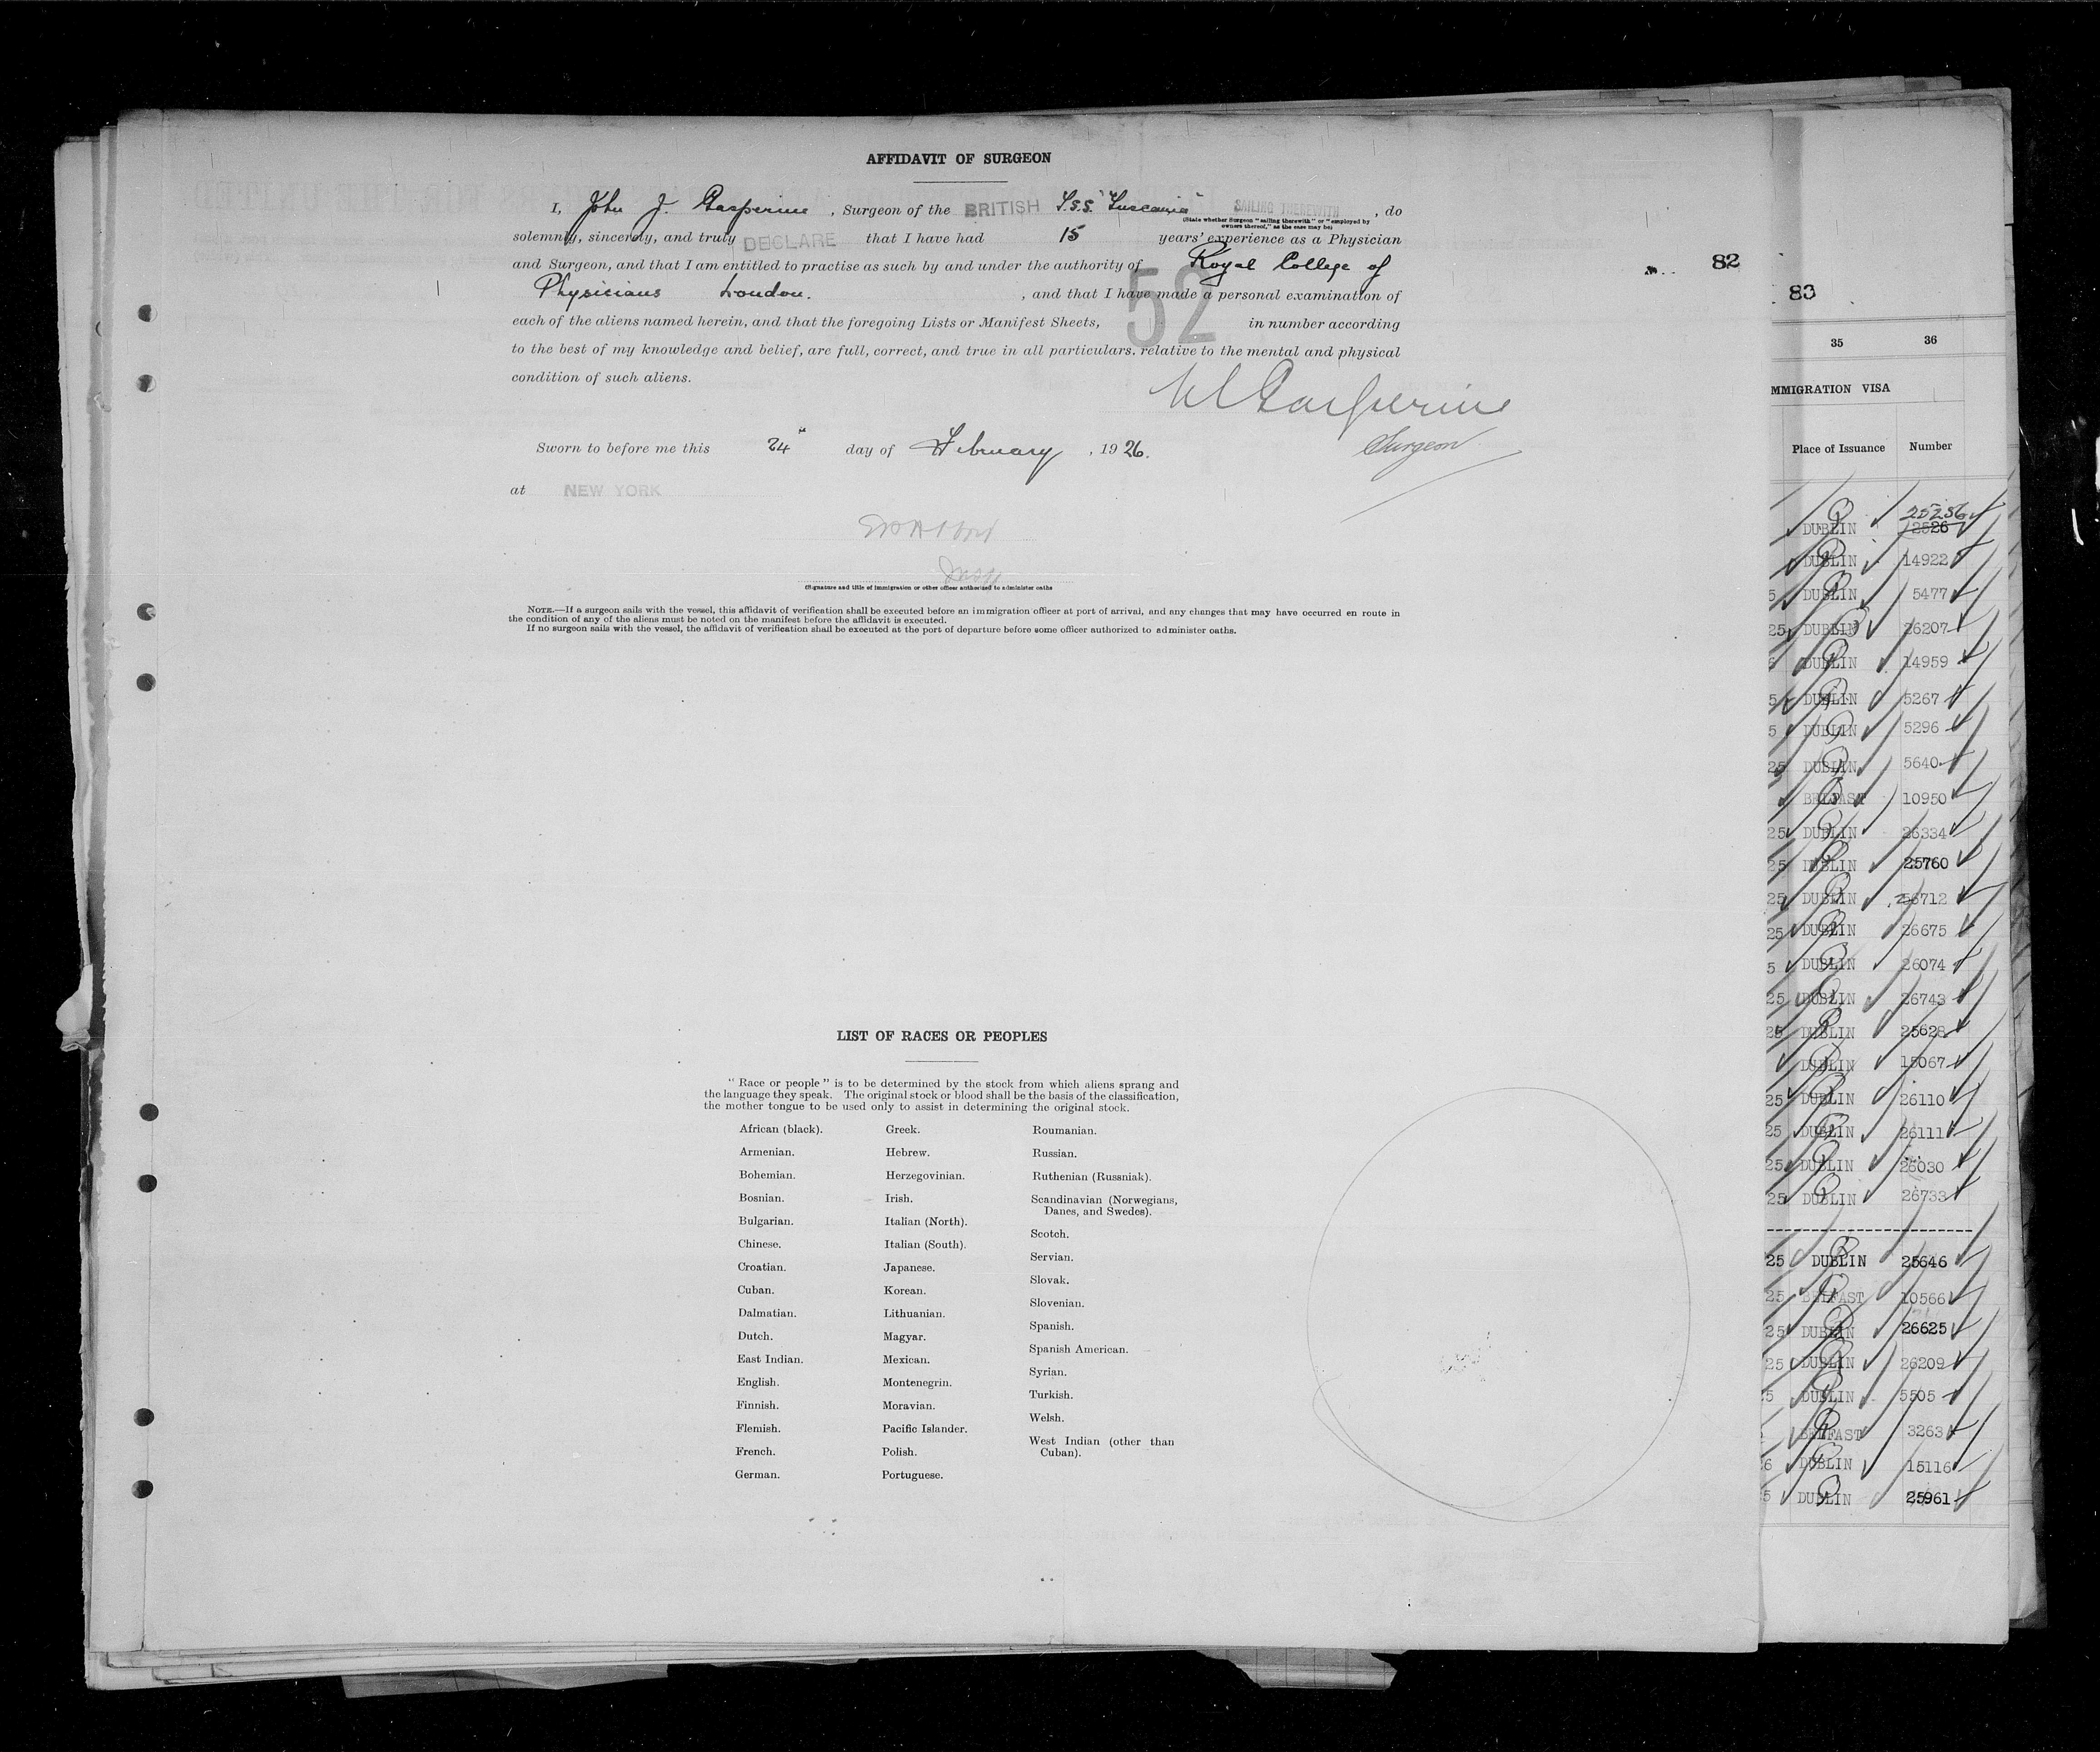 AFFIDAVIT OF SURGEON
I, John J. Gasperine, Surgeon of the BRITISH T.S.S. "Tuscania" SAILING THEREWITH, do
(State whether Surgeon "sailing therewith" or "employed by
owners thereof," as the case may be)
solemnly, sincerely, and truly DECLARE that I have had 15 years' experience as a Physician
and Surgeon, and that I am entitled to practise as such by and under the authority of Royal College of
Physicians London., and that I have made a personal examination of
each of the aliens named herein, and that the foregoing Lists or Manifest Sheets, 52 in number according
to the best of my knowledge and belief, are full, correct, and true in all particulars. relative to the mental and physical
condition of such aliens.
Gasperine
Surgeon
Sworn to before me this 24th day of February, 1926.
at NEW YORK
(Signature and title of immigration or other officer authorized to administer oaths
NOTE.—If a surgeon sails with the vessel, this affidavit of verification shall be executed before an immigration officer at port of arrival, and any changes that may have occurred en route in
the condition of any of the aliens must be noted on the manifest before the affidavit is executed.
If no surgeon sails with the vessel, the affidavit of verification shall be executed at the port of departure before some officer authorized to administer oaths.
LIST OF RACES OR PEOPLES
"Race or people" is to be determined by the stock from which aliens sprang and
the language they speak. The original stock or blood shall be the basis of the classification,
the mother tongue to be used only to assist in determining the original stock.
African (black).
Armenian.
Bohemian.
Bosnian.
Bulgarian.
Chinese.
Croatian.
Cuban.
Dalmatian.
Dutch.
East Indian.
English.
Finnish.
Flemish.
French.
German.
Greek.
Hebrew.
Herzegovinian.
Irish.
Italian (North).
Italian (South).
Japanese.
Korean.
Lithuanian.
Magyar.
Mexican.
Montenegrin.
Moravian.
Pacific Islander.
Polish.
Portuguese.
Roumanian.
Russian.
Ruthenian (Russniak).
Scandinavian (Norwegians,
Danes, and Swedes).
Scotch.
Servian.
Slovak.
Slovenian.
Spanish.
Spanish American.
Syrian.
Turkish.
Welsh.
West Indian (other than
Cuban).
82
83
35 36
MMIGRATION VISA
Place of Issuance Number
25256
DUBLIN 2526
DUBLIN 14922
5 DUBLIN 5477
25 DUBLIN 26207
6 DUBLIN 14959
5 DUBLIN 5267
5 DUBLIN 5296
25 DUBLIN 5640
BELFAST 10950
25 DUBLIN 26334
25 DUBLIN 25760
25 DUBLIN 26712
25 DUBLIN 26675
5 DUBLIN 26074
25 DUBLIN 26743
25 DUBLIN 25628
DUBLIN 15067
25 DUBLIN 26110
25 DUBLIN 26111
25 DUBLIN 26030
25 DUBLIN 26733
25 DUBLIN 25646
25 BELFAST 10566
25 DUBLIN 26625
25 DUBLIN 26209
5 DUBLIN 5505
BELFAST 3263
6 DUBLIN 15116
5 DUBLIN 25961